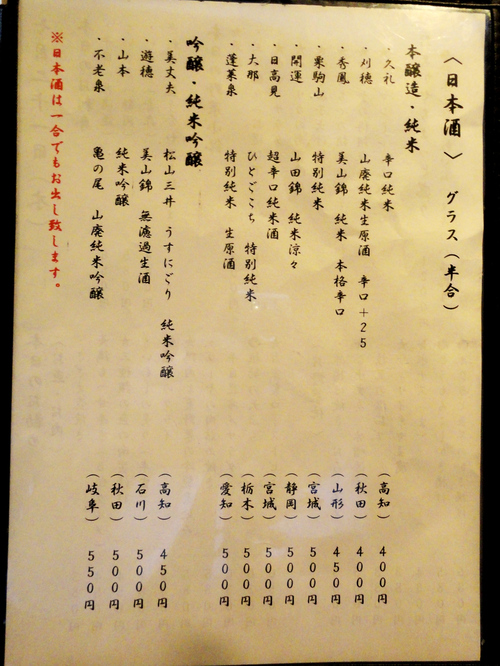 〈日本酒〉 グラス（半合）
本醸造・純米
・久礼 辛口純米 （高知） 400円
・刈穂 山廃純米生原酒 辛口＋25 （秋田） 400円
・秀鳳 美山錦 純米 本格辛口 （山形） 450円
・栗駒山 特別純米 （宮城） 500円
・開運 山田錦 純米涼々 （静岡） 500円
・日高見 超辛口純米酒 （宮城） 500円
・大那 ひとごこち 特別純米 （栃木） 500円
・蓬莱泉 特別純米 生原酒 （愛知） 500円
吟醸・純米吟醸
・美丈夫 松山三井 うすにごり 純米吟醸 （高知） 450円
・遊穂 美山錦 無濾過生酒 （石川） 500円
・山本 純米吟醸 （秋田） 500円
・不老泉 亀の尾 山廃純米吟醸 （岐阜） 550円
※日本酒は一合でもお出し致します。